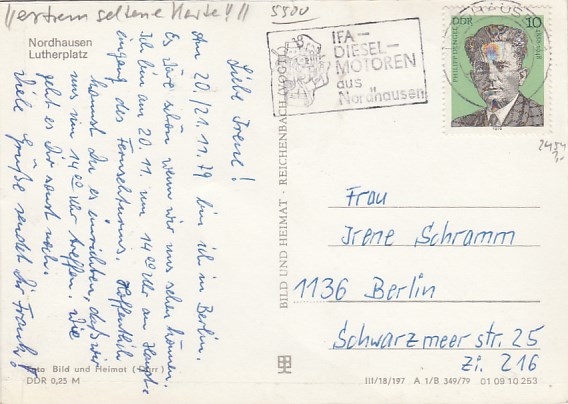 !!extrem seltene Karte!!!
5500
Nordhausen
Lutherplatz
Liebe Irene!
Am 20./21.11.79 bin ich in Berlin.
Es wäre schön wenn wir uns sehen können.
Ich bin am 20.11. um 14 00 Uhr am Haupt-
eingang des Fernsehturms. Hoffentlich
kannst Du es einrichten, daß wir
uns um 14 00 Uhr treffen. Wie
geht es Dir sonst noch.
Viele Grüße sendet Dir Frank!
IFA-
DIESEL-
MOTOREN
aus
Nordhausen
DDR 10
PHILIPP DENGEL
1888-1948
1979
2454
BILD UND HEIMAT · REICHENBACH (VOGTL)
Frau
Irene Schramm
1136 Berlin
Schwarzmeerstr. 25
Zi. 216
Foto Bild und Heimat (Darr)
DDR 0,25 M
III/18/197 A 1/B 349/79 01 09 10 253